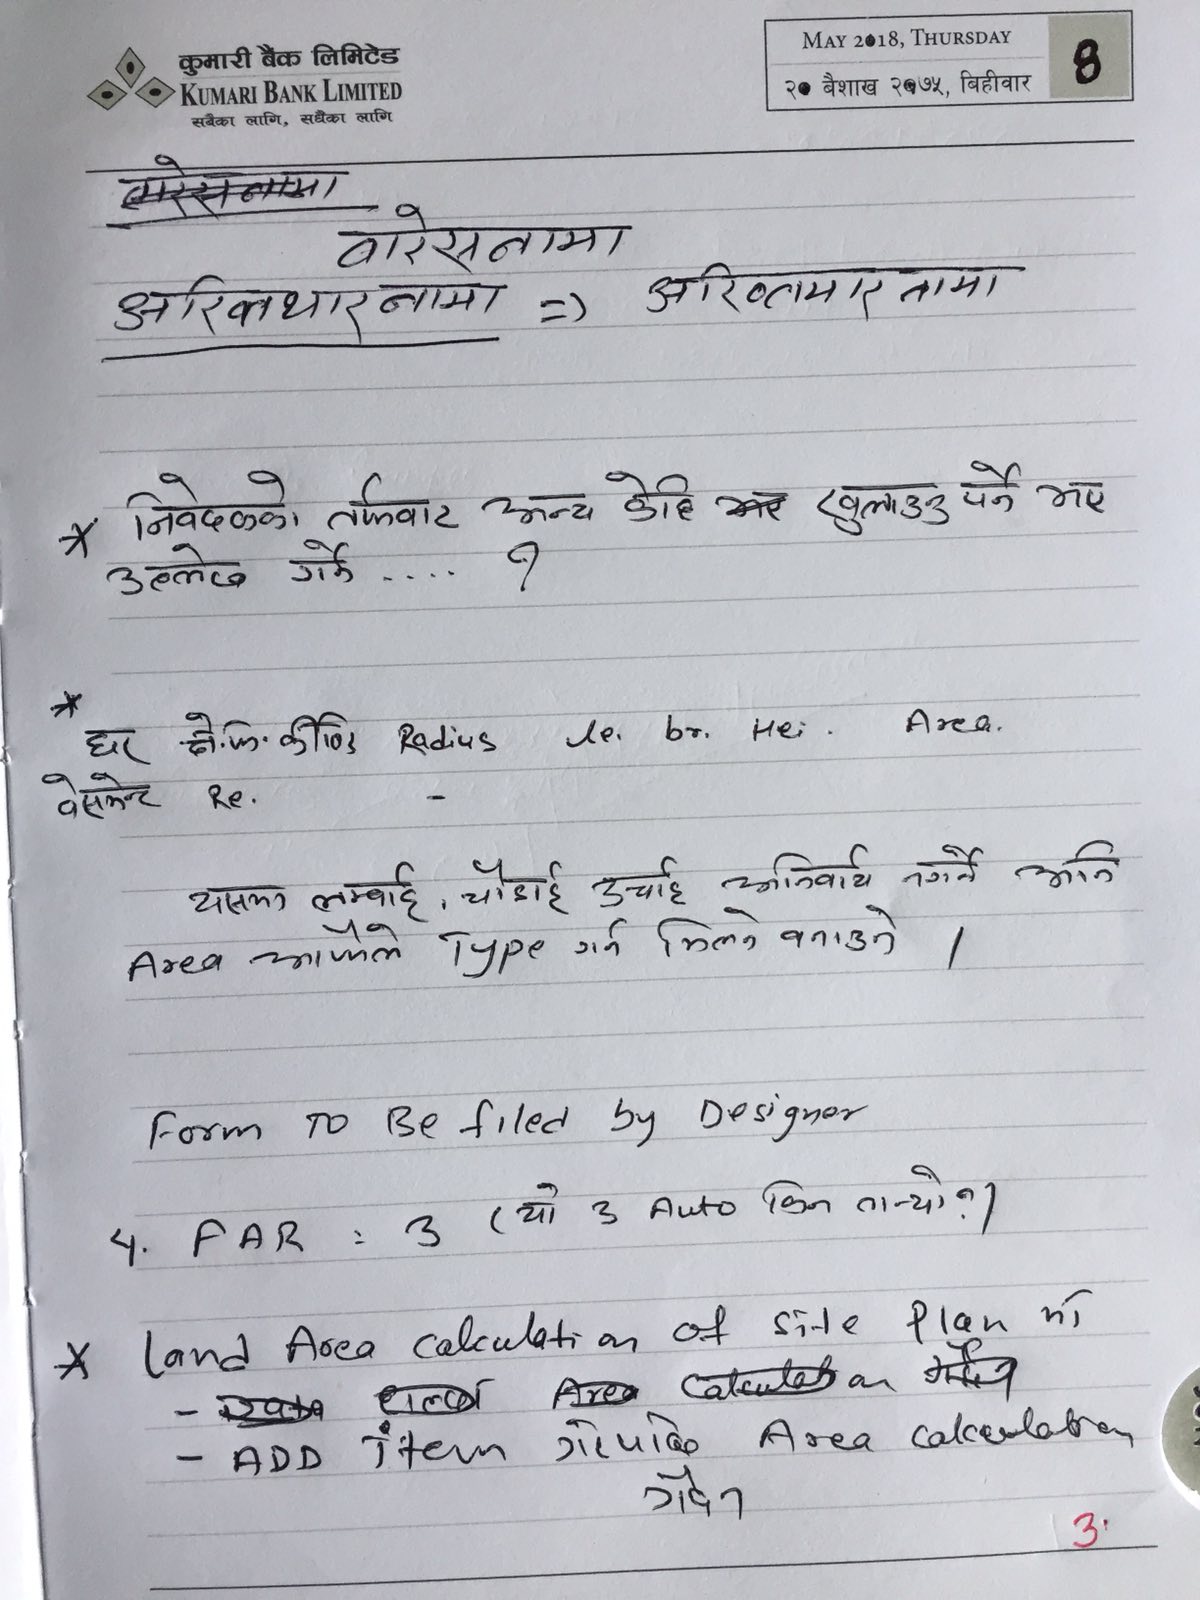 कुमारी बैंक लिमिटेड
KUMARI BANK LIMITED
सबैका लागि, सधैंका लागि
MAY 2018, THURSDAY
२० बैशाख २०७५, बिहीवार
8
वारेसनामा
वारेसनामा
अख्तियारनामा => अख्तियारनामा
* निवेदकको तर्फवाट अन्य केहि भए खुलाउनु पर्ने भए
उल्लेख गर्ने .... ?
*
घर क्षे.फि. Radius le. br. Hei. Area.
वेसमेन्ट Re. -
यसमा लम्वाई, चौडाई उचाई अनिवार्य नगर्ने अनि
Area आफैले Type गर्न मिल्ने बनाउने ।
Form TO Be filed by Designer
4. FAR : 3 (यो 3 Auto किन तान्यो?)
* Land Area calculation of Site Plan मा
- Area Calculation
- ADD Item गरेपछि Area calculation
गर्दैन
3.